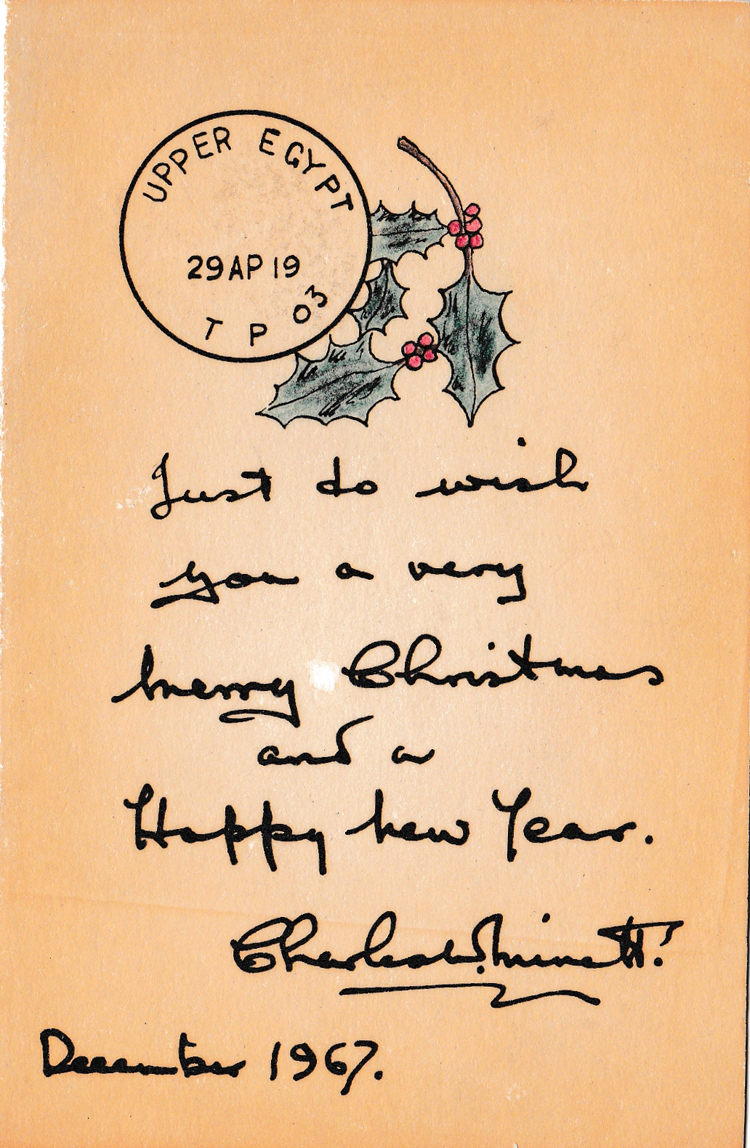 UPPER EGYPT
29 AP 19
T P 03
Just do wish
you a very
merry Christmas
and a
Happy new Year.
Charles W. Minett.
December 1967.